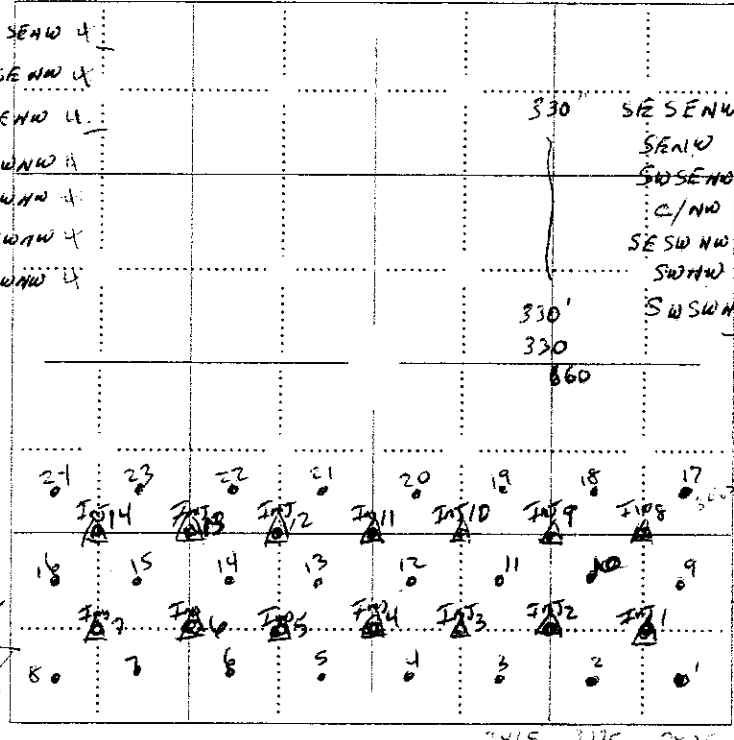 SENW 4
SE NW 4
ENW 4
WNW 4
WNW 4
WNW 4
WNW 4
330'
SE SENW
SENW
SWSENW
C/NW
SE SW NW
SWNW
SWSWN
330'
330
660
24 23 22 21 20 19 18 17
14 13 Inj 12 Inj 11 Inj 10 Inj 9 Inj 8
16 15 14 13 12 11 10 9
Inj 7 Inj 6 Inj 5 Inj 4 Inj 3 Inj 2 Inj 1
8 7 6 5 4 3 2 1